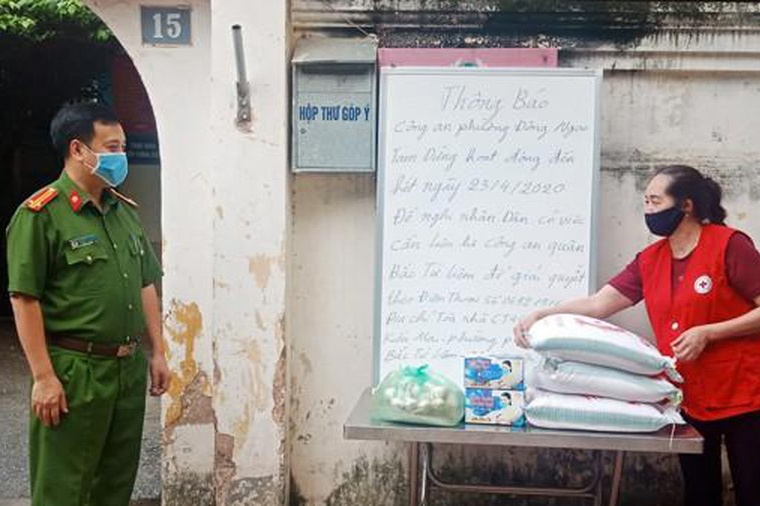 15
HỘP THƯ GÓP Ý
Thông Báo
Công an phường Đông Ngạc
Tạm Dừng hoạt động đến
hết ngày 23/4/2020
Đề nghị nhân Dân có việc
cần liên hệ công an quận
Bắc Từ Liêm để giải quyết
theo Điện Thoại Số 0692
Địa chỉ Toà nhà CT4
Kiều Mai - phường
Bắc Từ Liêm